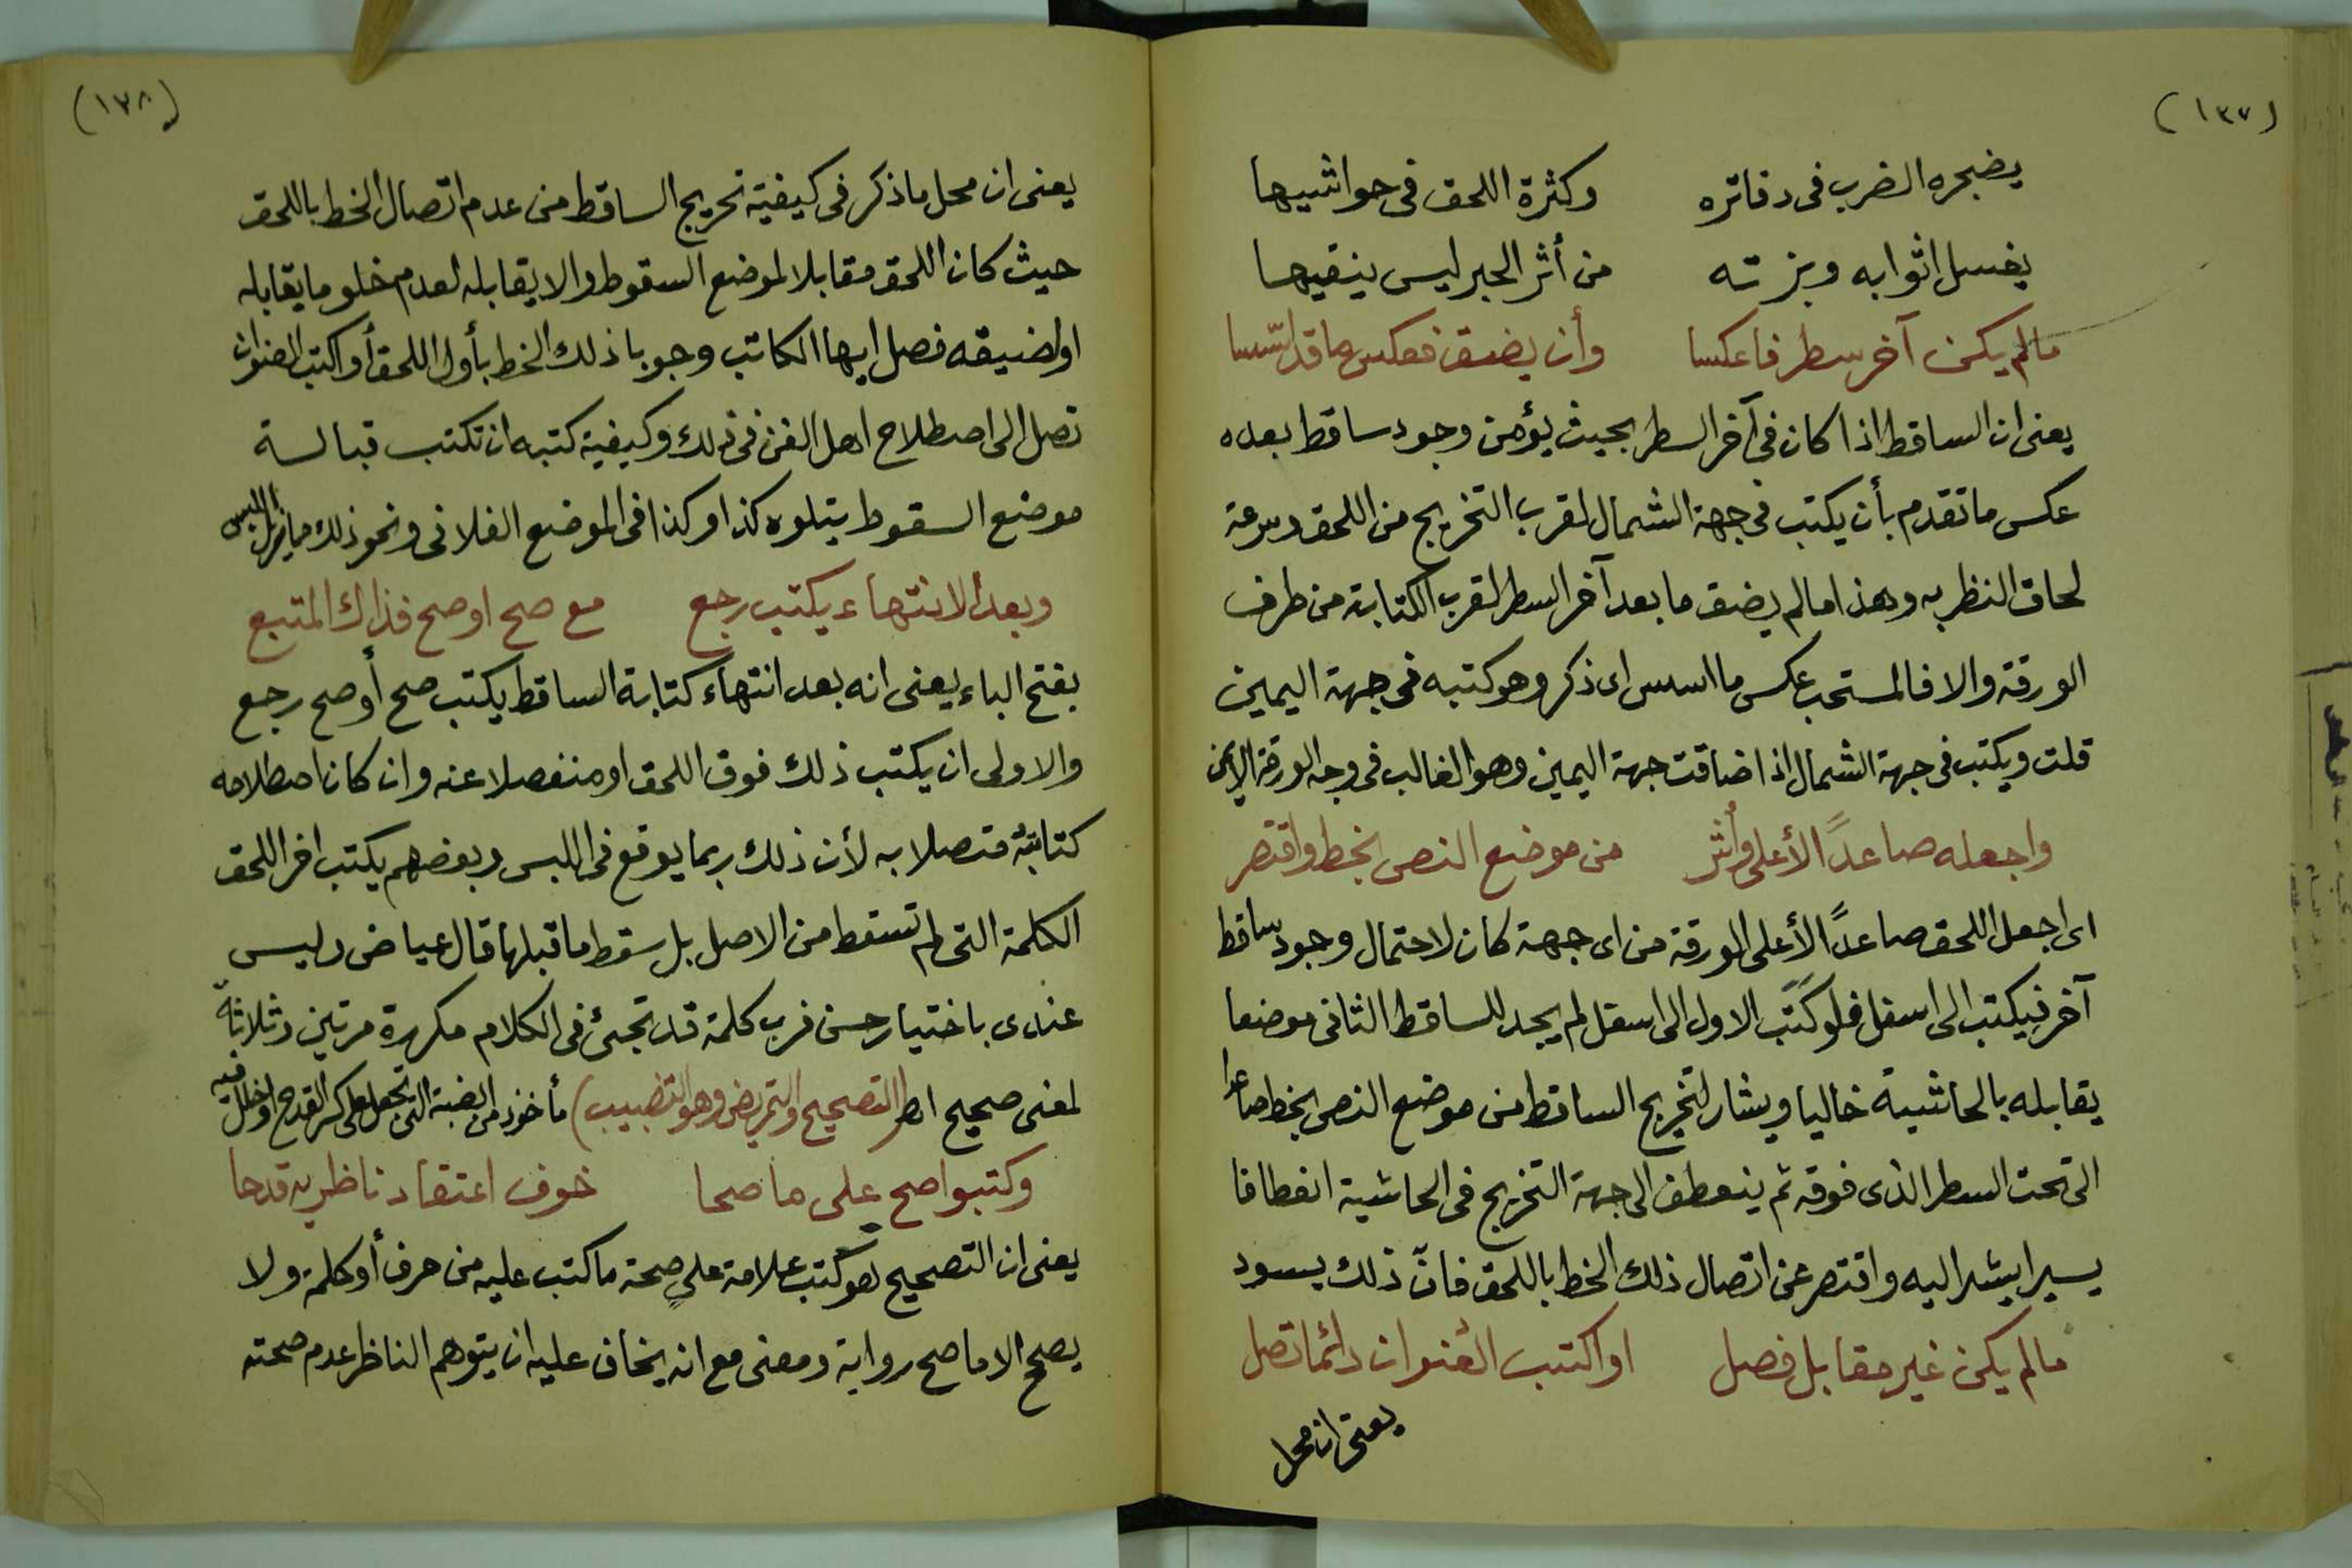 (١٣٧)
يضجره الضرب فى دفاتره وكثرة اللحق فى حواشيها
يغسل اثوابه وبزته من أثر الحبر ليس ينقيها
مالم يكن آخر سطر فاعكسا وأن يضق فعكس ما قد اسّسا
يعنى ان الساقط اذا كان فى آخر السطر بحيث يؤمن وجود ساقط بعده
عكس ما تقدم بأن يكتب فى جهة الشمال لقرب التخريج من اللحق وسرعة
لحاق النظر به وهذا مالم يضق ما بعد آخر السطر لقرب الكتابة من طرف
الورقة والا فالمستحب عكس ما اسس اى ذكر وهو كتبه فى جهة اليمين
قلت ويكتب فى جهة الشمال اذا ضاقت جهة اليمين وهو الغالب فى وجه الورقة الايمن
واجعله صاعداً الأعلى وأشر من موضع النص بخط واقتصر
اى اجعل اللحق صاعداً الأعلى الورقة من اى جهة كان لاحتمال وجود ساقط
آخر فيكتب الى اسفل فلو كتب الاول الى اسفل لم يجد للساقط الثانى موضعا
يقابله بالحاشية خاليا ويشار لتخريج الساقط من موضع النص بخط صاعدا
الى تحت السطر الذى فوقه ثم ينعطف الى جهة التخريج فى الحاشية انعطافا
يسيرا يشير اليه واقتصر عن اتصال ذلك الخط باللحق فانّ ذلك يسود
مالم يكن غير مقابل فصل او اكتب العنوان دائما تصل
يعنى ان محل
(١٣٨)
يعنى ان محل ما ذكر فى كيفية تخريج الساقط من عدم اتصال الخط باللحق
حيث كان اللحق مقابلا لموضع السقوط والا يقابله لعدم خلو ما يقابله
او لضيقه فصل ايها الكاتب وجوبا ذلك الخط بأول اللحق أو اكتب العنوان
تصل الى اصطلاح اهل الفن فى ذلك وكيفية كتبه ان تكتب قبالة
موضع السقوط يتلوه كذا وكذا فى الموضع الفلانى ونحو ذلك مما يزيل اللبس
وبعد الانتهاء يكتب رجع مع صح او صح فذاك المتبع
بفتح الباء يعنى انه بعد انتهاء كتابة الساقط يكتب صح أو صح رجع
والاولى ان يكتب ذلك فوق اللحق او منفصلا عنه وان كان اصطلاحه
كتابته متصلا به لأن ذلك ربما يوقع فى اللبس وبعضهم يكتب اخر اللحق
الكلمة التى لم تسقط من الاصل بل سقط ما قبلها قال عياض وليس
عندى باختيار حسن فرب كلمة قد تجئ فى الكلام مكررة مرتين وثلاثة
لمعنى صحيح اﻫ (التصحيح والتمريض وهو التضبيب) مأخوذ من الضبة التى تجعل على كسر القدح او خلل فيه
وكتبوا صح على ما صحا خوف اعتقاد ناظر به قدحا
يعنى ان التصحيح هو كتب علامة على صحة ما كتب عليه من حرف أو كلمة ولا
يصح الا ما صح رواية ومعنى مع انه يخاف عليه ان يتوهم الناظر عدم صحته